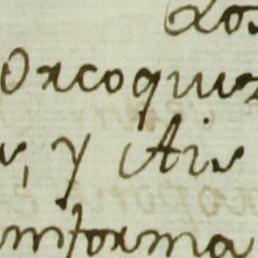 Los
Orcoquiz
s, y Ais
informa